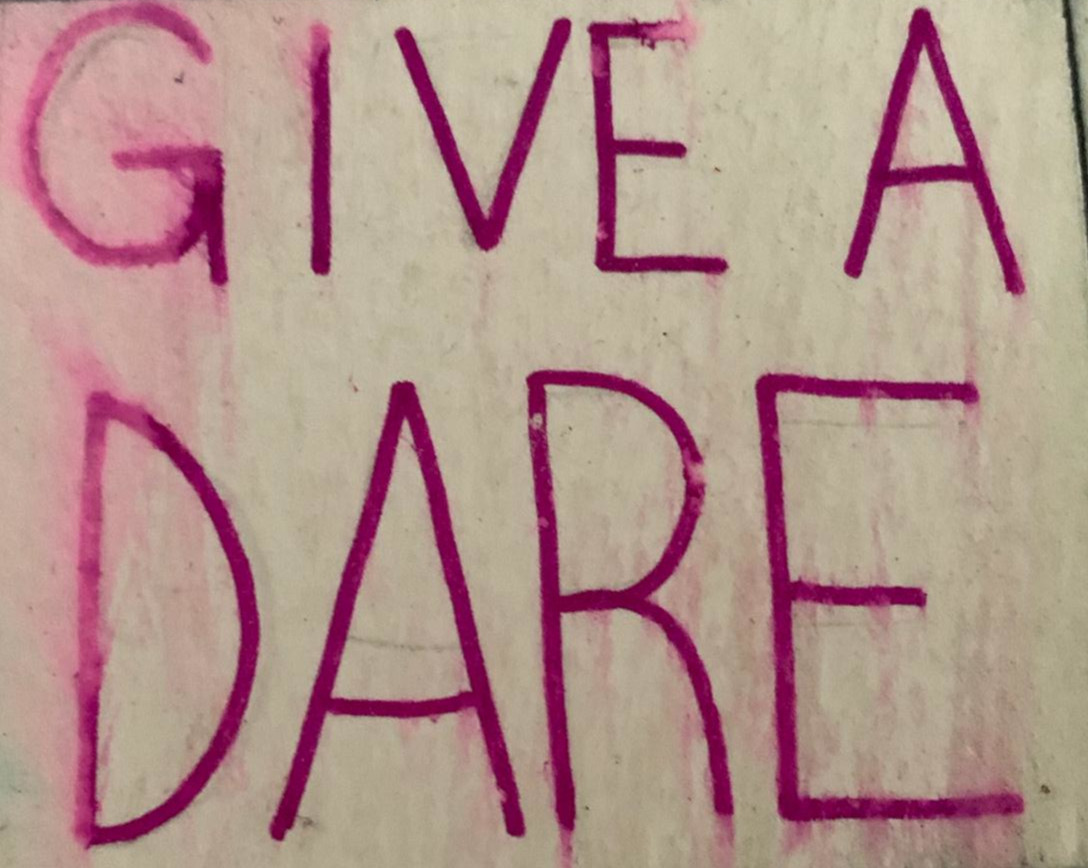 GIVE A
DARE